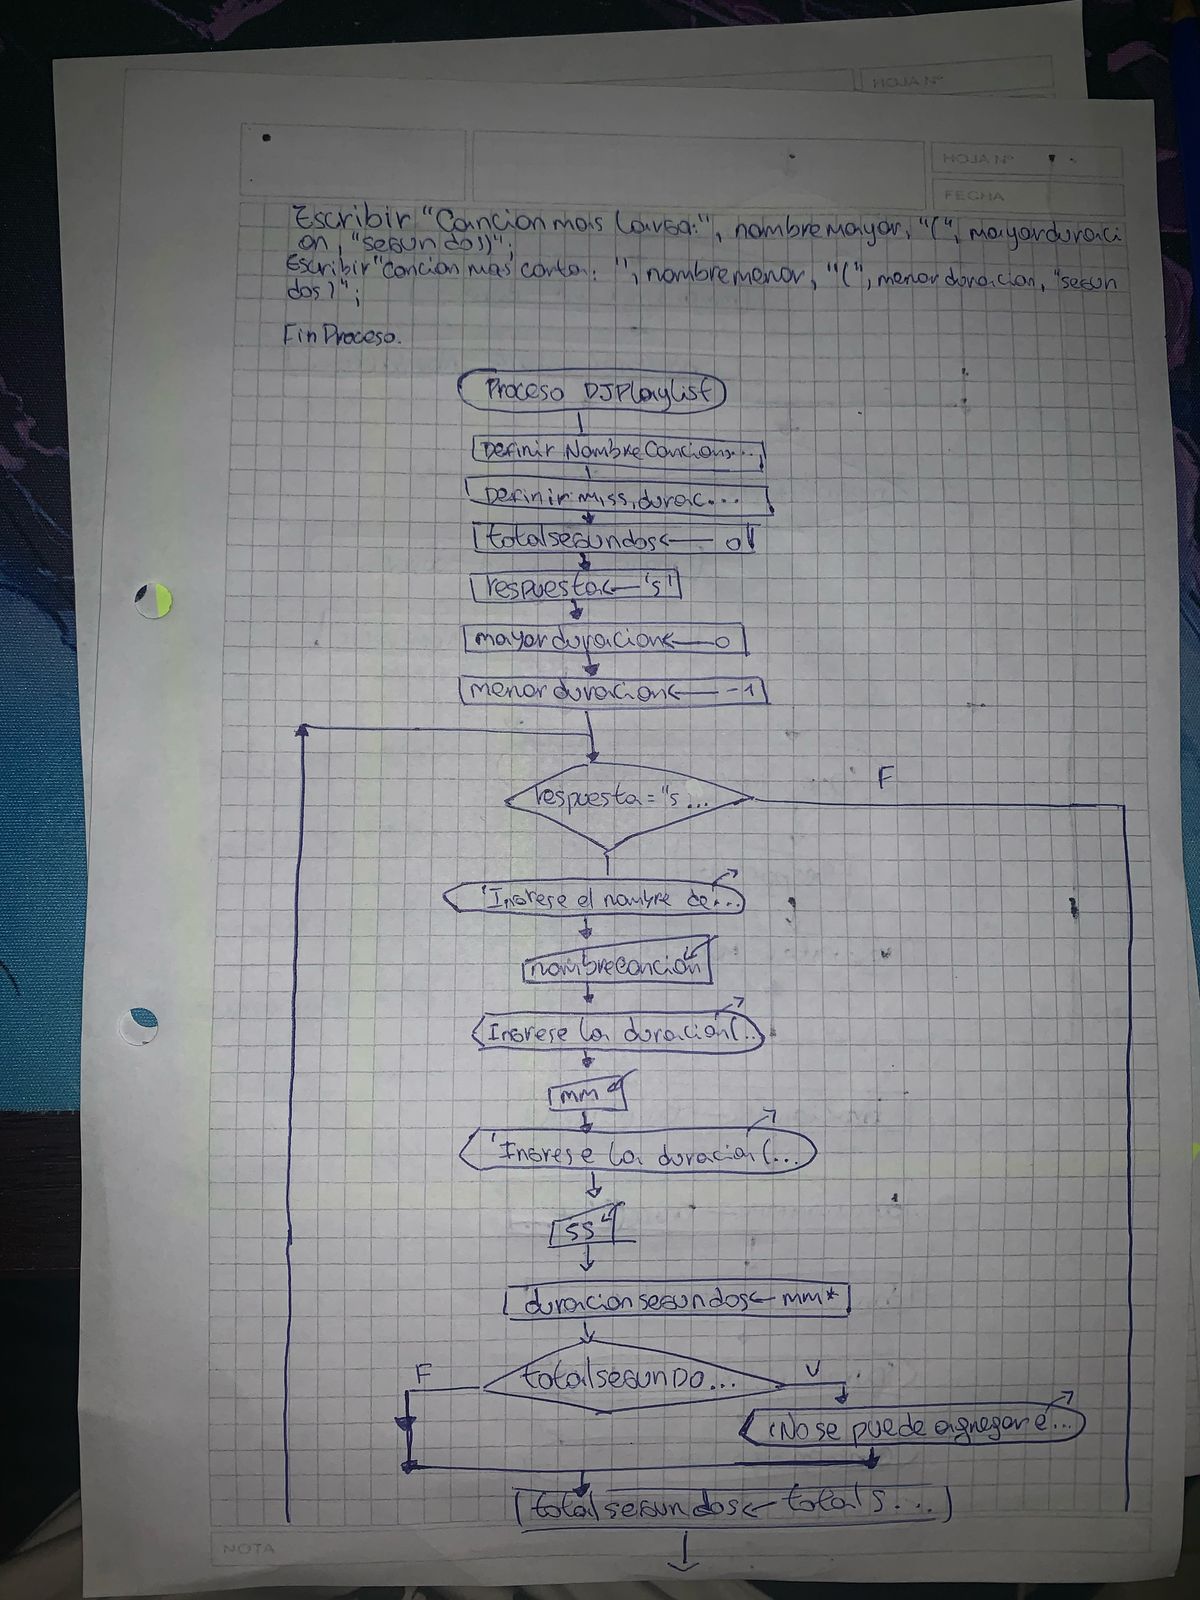 HOJA Nº
HOJA Nº
FECHA
Escribir "Cancion mas larga:", nombremayor, "(", mayorduraci
on, "segundos)";
Escribir "cancion mas corta: ", nombremenor, "(", menorduracion, "segun
dos)";
Fin Proceso.
Proceso DJPlaylist
Definir NombreCancion...
Definir miss, durac...
totalsegundos<— 0
respuesta<—'s'
mayorduracion<—0
menorduracion<— -1
respuesta="s...
F
'Ingrese el nombre de...
nombrecancion
Ingrese la duración(...
mm
'Ingrese la duracion(...
ss
duracionsegundos<—mm*
F
totalsegundo...
V
'No se puede agregar e...
totalsegundos<—totals....
NOTA